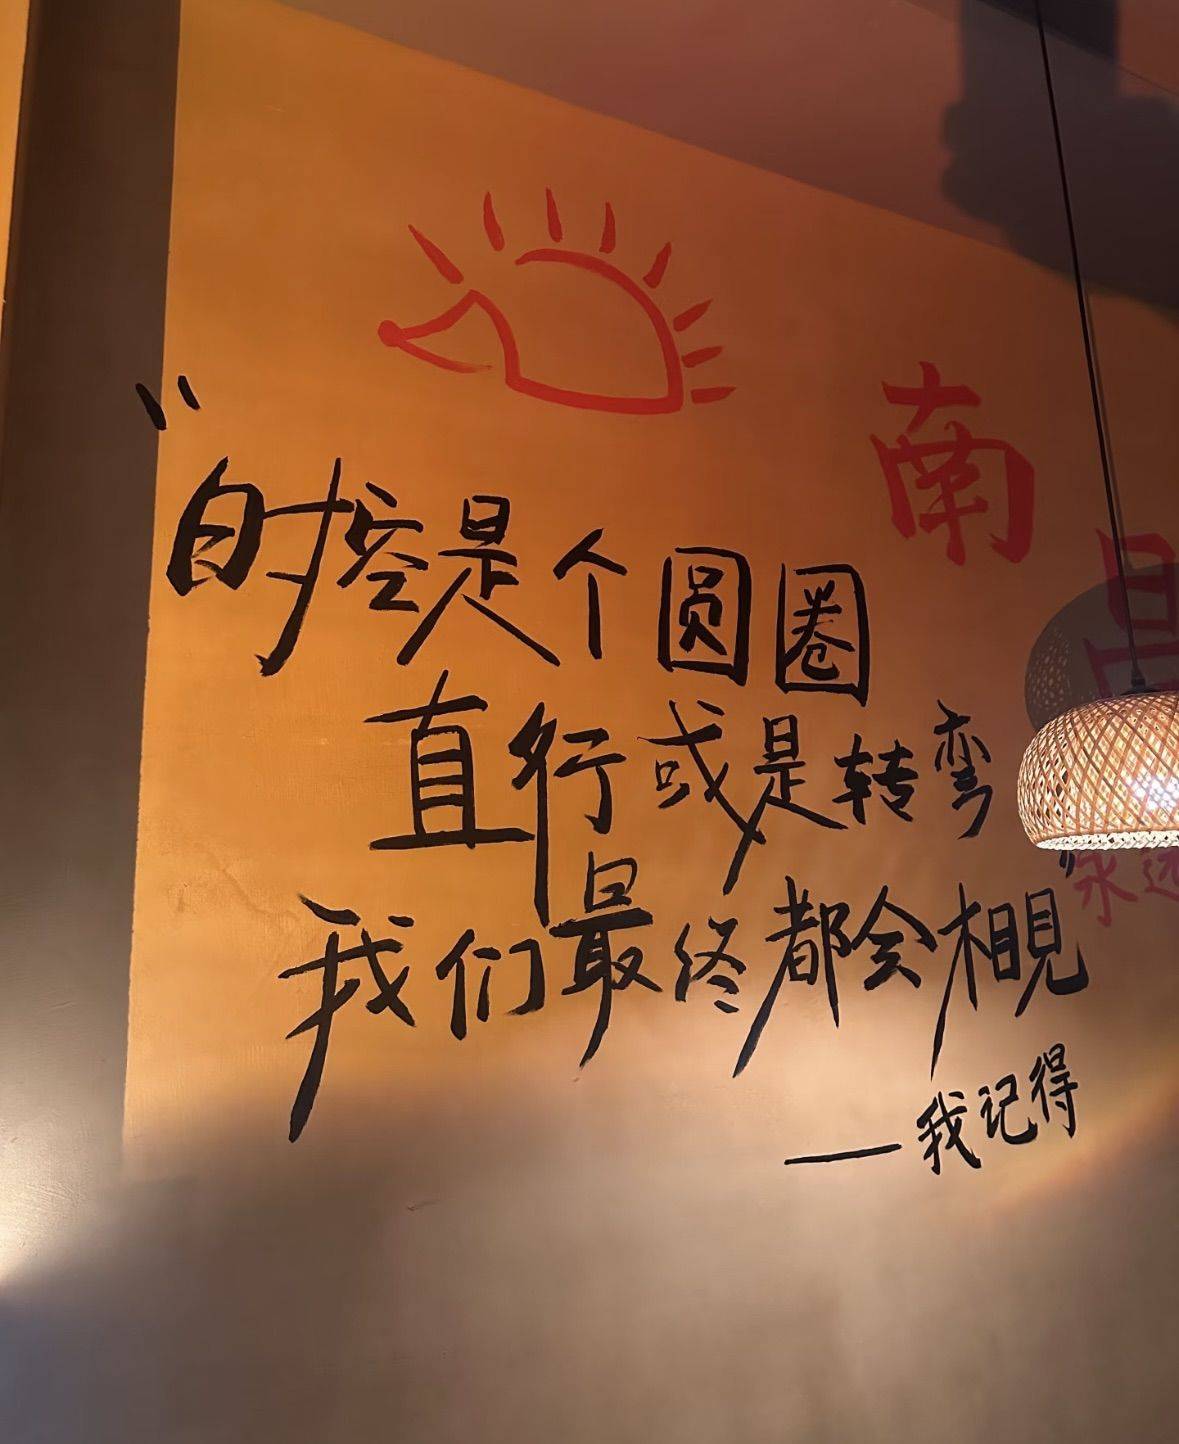 南昌
“时空是个圆圈
直行或是转弯
我们最终都会相见”
——我记得
永远